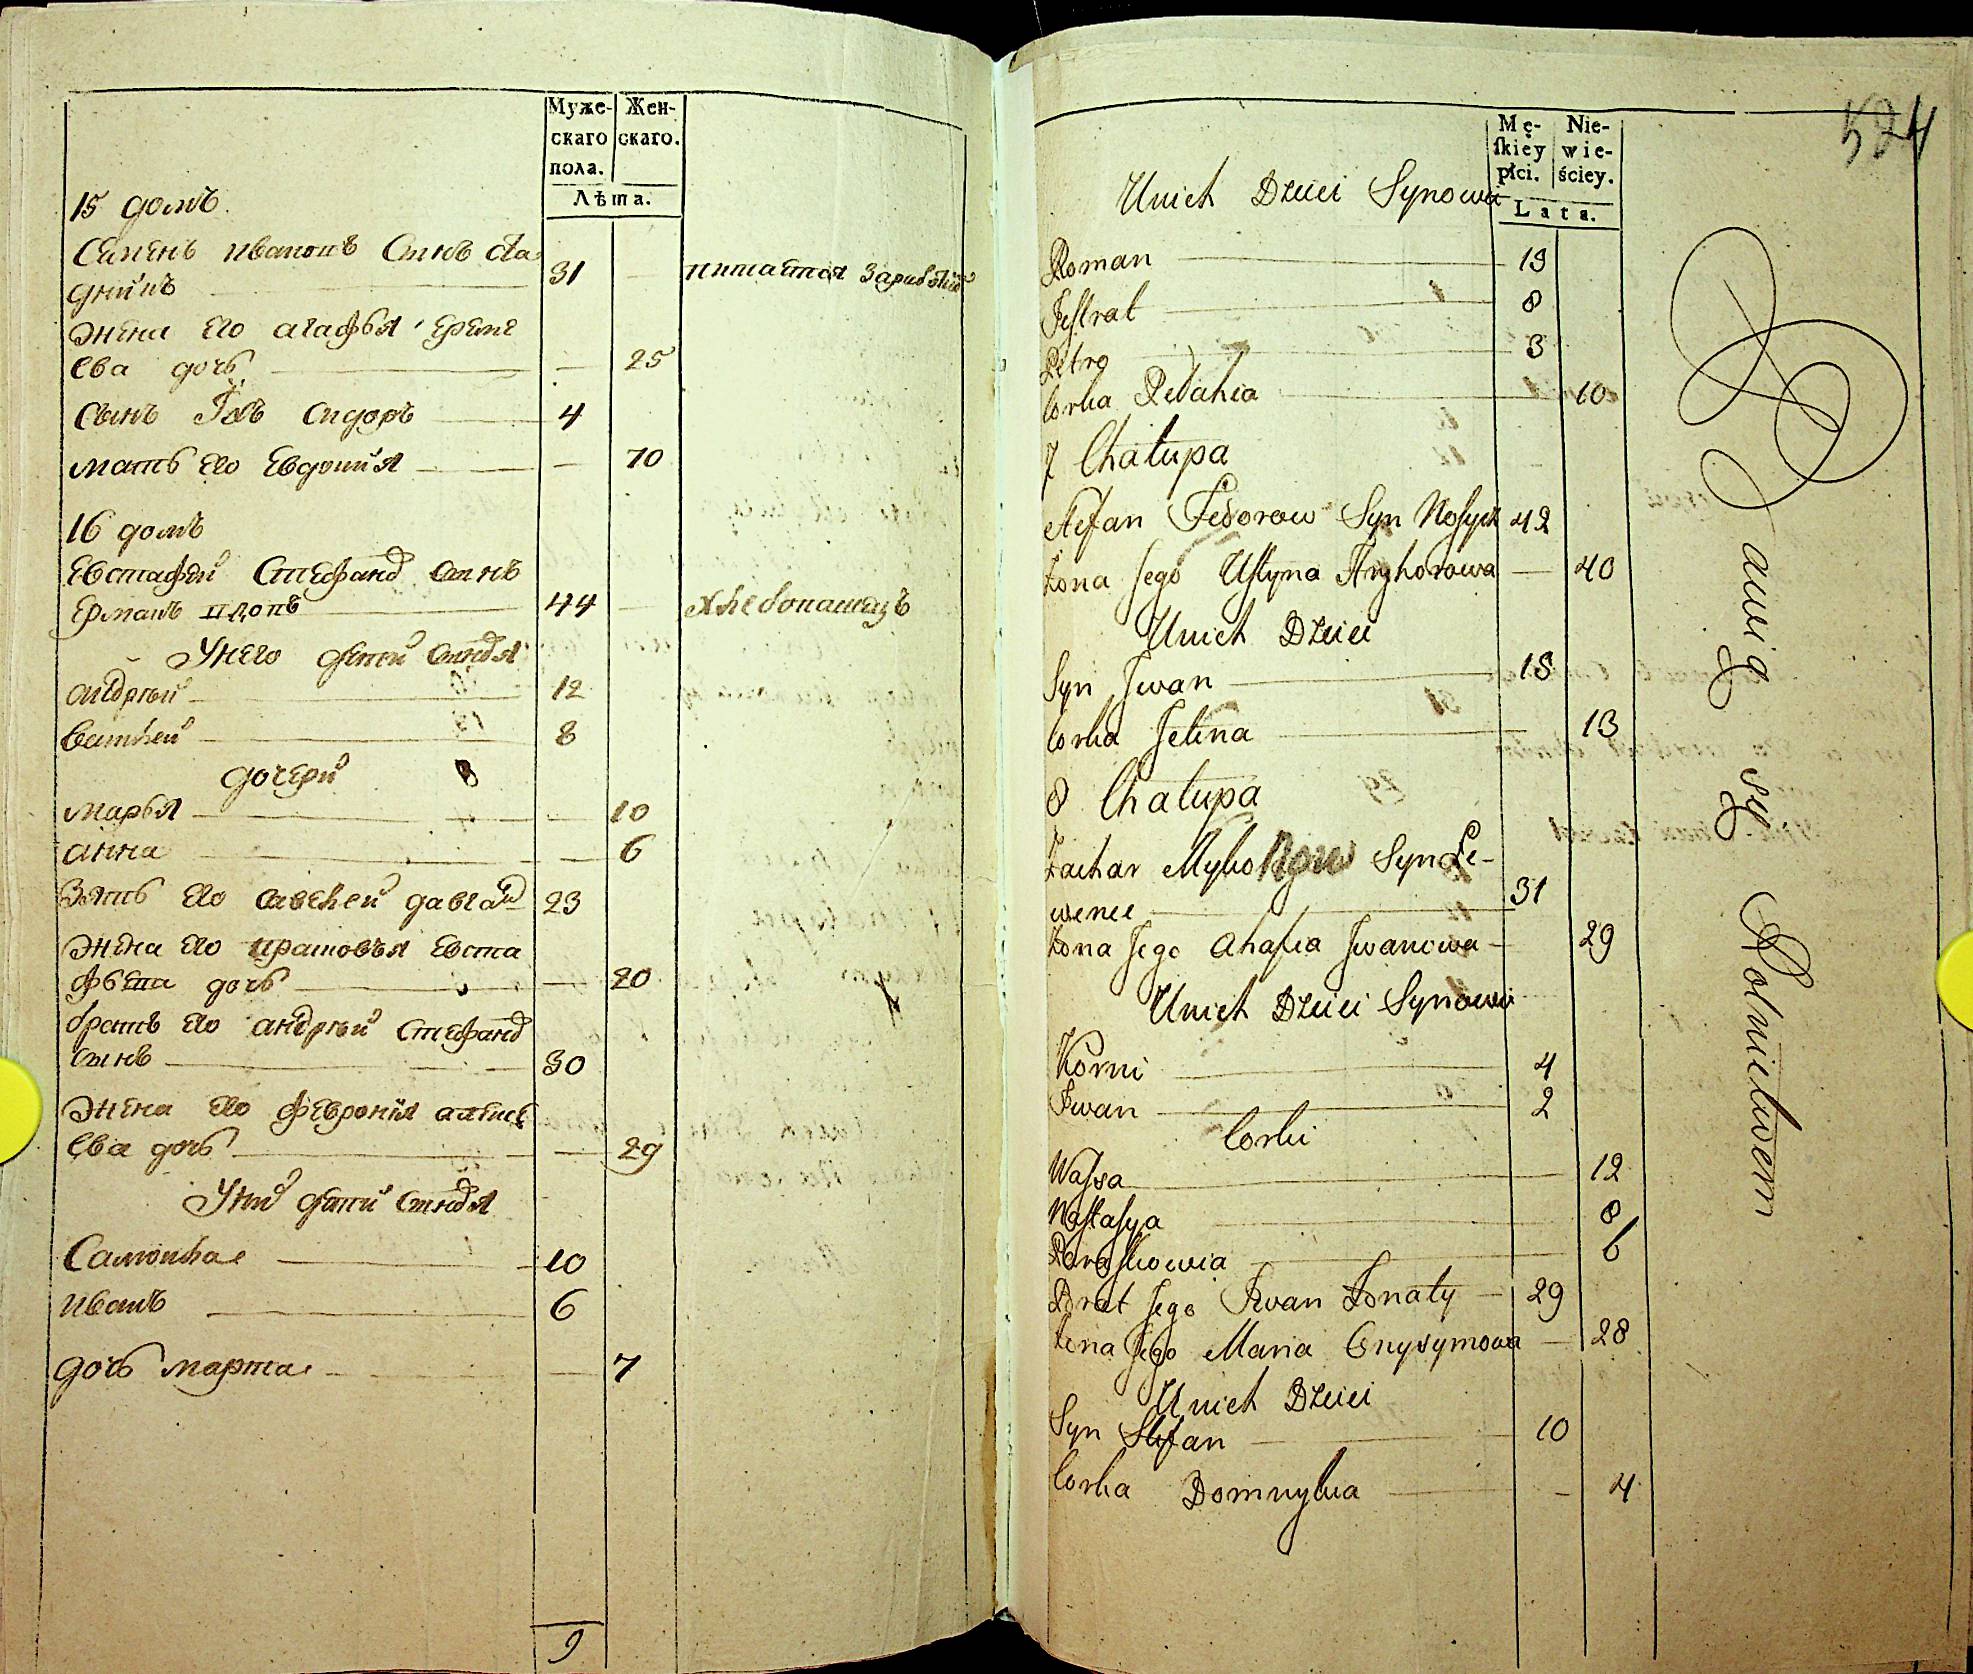 Муже-
скаго
пола.
Жен-
скаго.
Лѣта.
15 домъ.
Семенъ Ивановъ Сынъ
31
питается
Жена его агафья ереме
ева дочь 25
сынъ Ихъ сидоръ 4
мать его Евдокия 70
16 домъ
Евстафей Стефановъ сынъ
44 хлебопашецъ
Унего дети сыновья
андрей 12
8
дочери 8
марья 10
анна 6
Зять его 23
Жена его Евста
фьева дочь 20
братъ его андрей Стефановъ
сынъ 30
Жена его феврония алексе
ева дочь 29
Уних дети сыновья
Самойла 10
иванъ 6
дочь марта 7
9
524
Mę-
skiey
płci.
Nie-
wie-
ściey.
Lata.
Unich Dzieci Synowie
Roman 13
Jestrat 8
Petro 3
Corka Pelahia 10
7 Chałupa
Stefan Fedorow Syn Nosyk 42
Żona Jego Ustyna Hryhorowa 40
Unich Dzieci
Syn Jwan 18
Corka Jelena 13
8 Chałupa
Zachar Mykołajow Syn Le-
wenec 31
Żona Jego Ahafia Jwanowa 29
Unich Dzieci Synowie
Korni 4
Jwan 2
Corki
Wassa 12
Nastasya 8
Paraskowia 6
Brat Jego Jwan Żonaty 29
Żona Jego Maria Onysymowa 28
Unich Dzieci
Syn Stefan 10
Corka Domnykia 4
Bawią się Rolnictwem